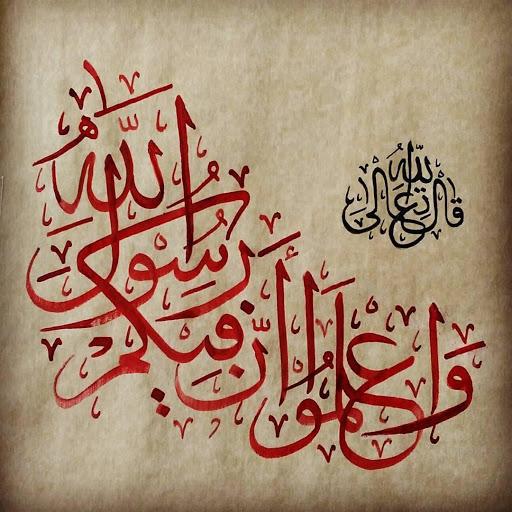 قال الله تعالى
واعلموا أنّ فيكم
رسول الله